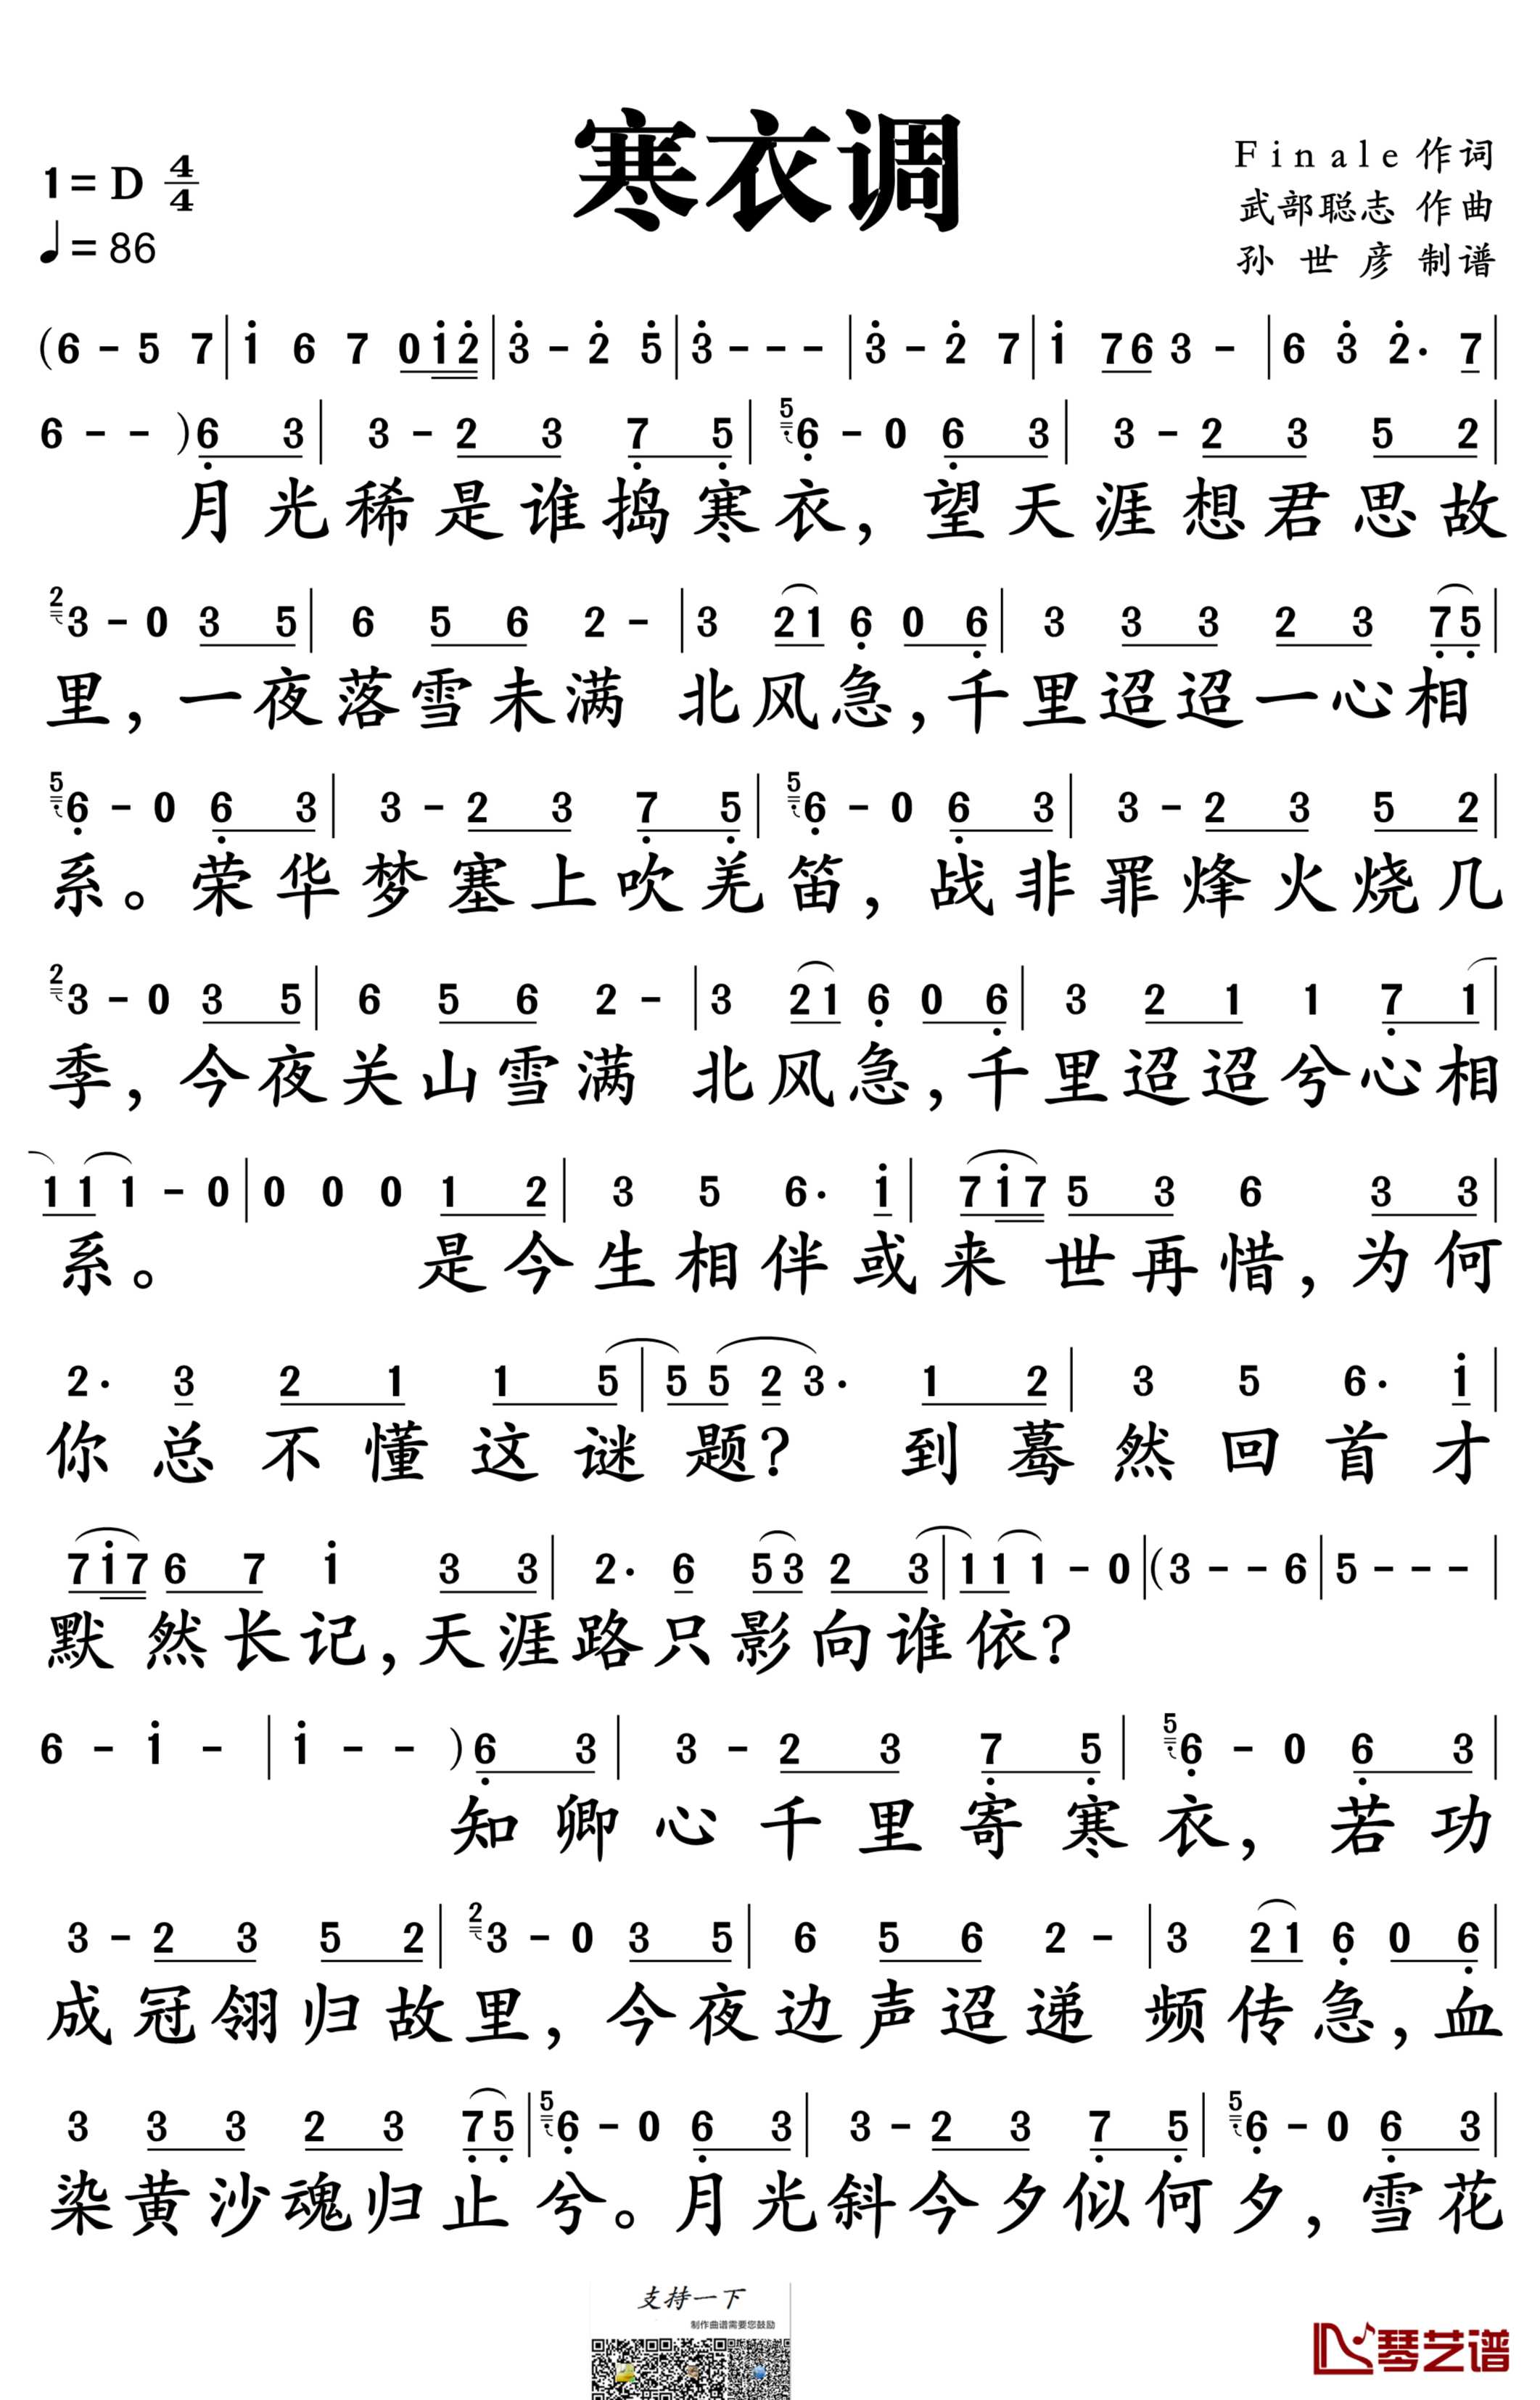 寒衣调
1=D 4/4
♩=86
Finale 作词
武部聪志 作曲
孙世彦 制谱
(6 - 5 7 | i 6 7 0 i 2 | 3 - 2 5 | 3 - - - | 3 - 2 7 | i 7 6 3 - | 6 3 2· 7 |
6 - - ) 6 3 | 3 - 2 3 7 5 | 5 6 - 0 6 3 | 3 - 2 3 5 2 |
月光稀是谁捣寒衣，望天涯想君思故
2 3 - 0 3 5 | 6 5 6 2 - | 3 2 1 6 0 6 | 3 3 3 2 3 7 5 |
里，一夜落雪未满 北风急，千里迢迢一心相
5 6 - 0 6 3 | 3 - 2 3 7 5 | 5 6 - 0 6 3 | 3 - 2 3 5 2 |
系。荣华梦塞上吹羌笛，战非罪烽火烧几
2 3 - 0 3 5 | 6 5 6 2 - | 3 2 1 6 0 6 | 3 2 1 1 7 1 |
季，今夜关山雪满 北风急，千里迢迢兮心相
1 1 1 - 0 | 0 0 0 1 2 | 3 5 6· i | 7 i 7 5 3 6 3 3 |
系。 是今生相伴或来世再惜，为何
2· 3 2 1 1 5 | 5 5 2 3· 1 2 | 3 5 6· i |
你总不懂这谜题？ 到蓦然回首才
7 i 7 6 7 i 3 3 | 2· 6 5 3 2 3 | 1 1 1 - 0 | (3 - - 6 | 5 - - - |
默然长记，天涯路只影向谁依？
6 - i - | i - - ) 6 3 | 3 - 2 3 7 5 | 5 6 - 0 6 3 |
知卿心千里寄寒衣，若功
3 - 2 3 5 2 | 2 3 - 0 3 5 | 6 5 6 2 - | 3 2 1 6 0 6 |
成冠翎归故里，今夜边声迢递 频传急，血
3 3 3 2 3 7 5 | 5 6 - 0 6 3 | 3 - 2 3 7 5 | 5 6 - 0 6 3 |
染黄沙魂归止兮。月光斜今夕似何夕，雪花
支持一下
制作曲谱需要您鼓励
琴艺谱